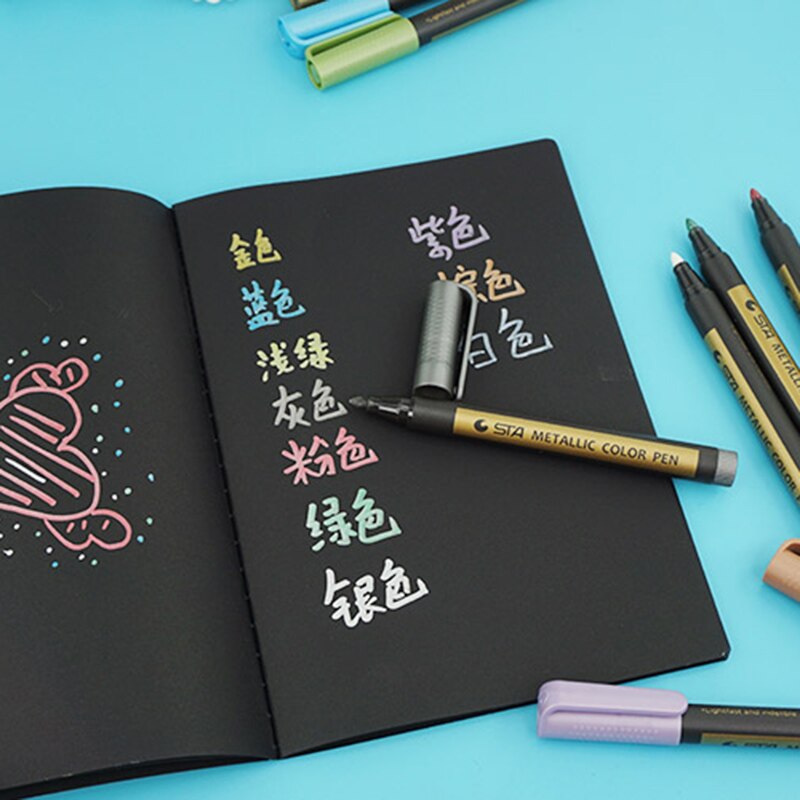 金色
蓝色
浅绿
灰色
粉色
绿色
银色
紫色
棕色
白色
STA METALLIC COLOR PEN
STA METALLIC
STA METALLIC COLOR
STA